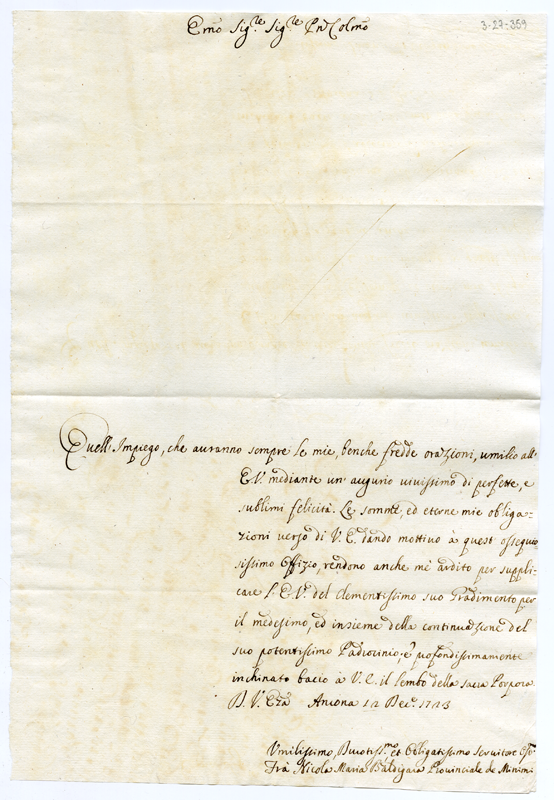 Em̃o Sig.re Sig.re Pñ Colmõ
3-27-359
Quell'Impiego, che auranno sempre le mie, benche fredde orazioni, umilio all'
E.V. mediante un'augurio viuissimo di perfette, e
sublimi felicità. Le somme, ed eterne mie obliga-
zioni uerso di V.E. dando mottiuo à quest'ossequio-
sissimo Offizio, rendono anche mè ardito per suppli-
care l'E.V. del clementissimo suo Gradimento per
il medesimo, ed insieme della continuazione del
suo potentissimo Padrocinio; e profondissimamente
inchinato bacio à V.E. il lembo della sacra Porpora
D. V. Em̃za Ancona 12 Dec. 1723
Vmilissimo, Diuotiss.mo et Obligatissimo Seruitore
Frà Nicola Maria Baldigara Prouinciale de Minimi